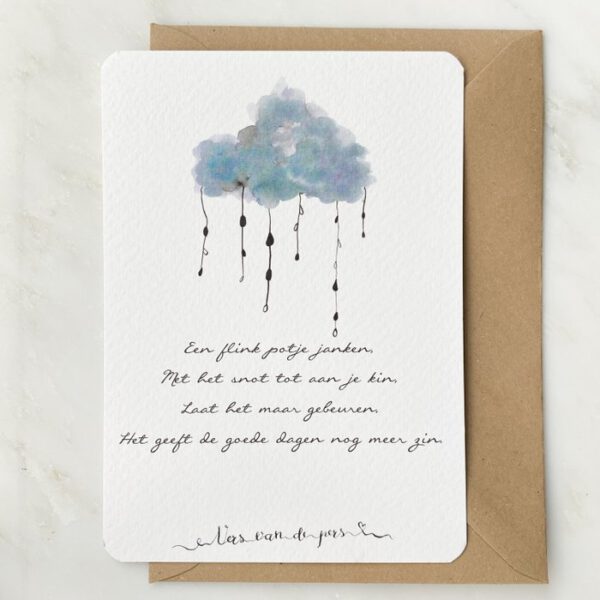 Een flink potje janken,
Met het snot tot aan je kin,
Laat het maar gebeuren,
Het geeft de goede dagen nog meer zin.
Vers van de pers